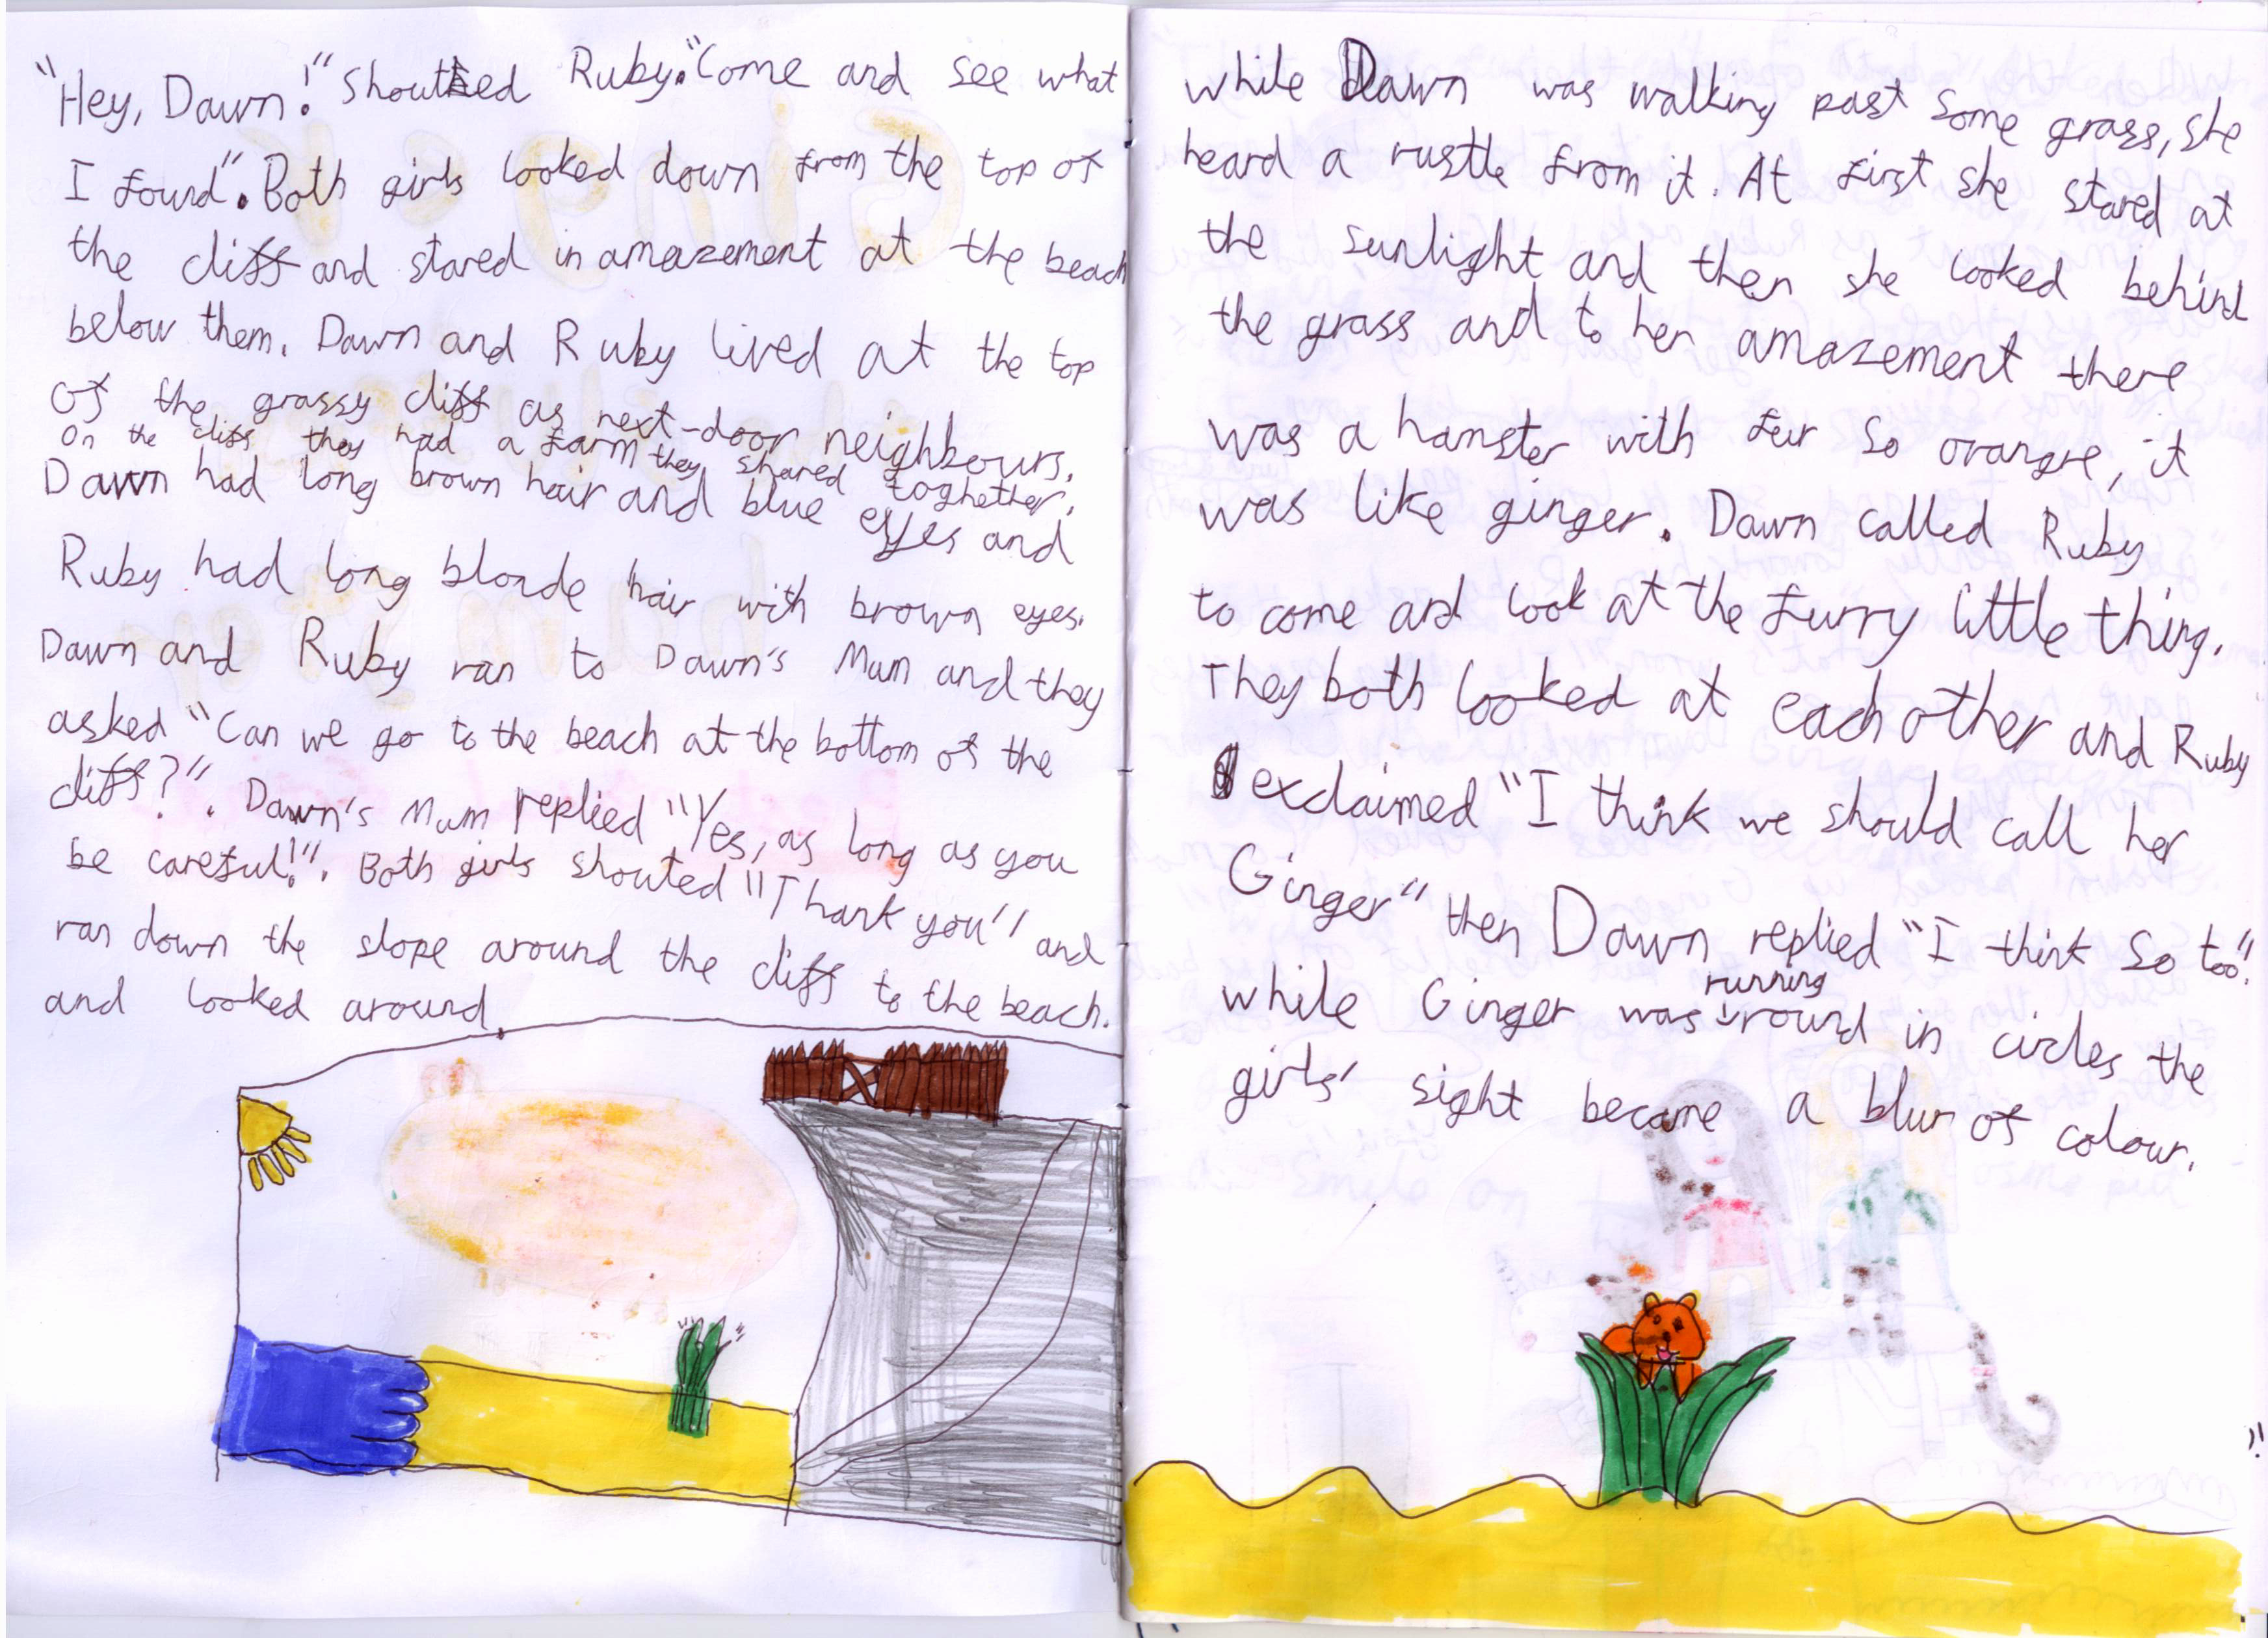 "Hey, Dawn!" Shouted Ruby. "Come and see what
I found". Both girls looked down from the top of
the cliff and stared in amazement at the beach
below them. Dawn and Ruby lived at the top
of the grassy cliff as next-door neighbours.
On the cliff they had a farm they shared toghether.
Dawn had long brown hair and blue eyes and
Ruby had long blonde hair with brown eyes.
Dawn and Ruby ran to Dawn's Mum and they
asked "Can we go to the beach at the bottom of the
cliff?". Dawn's Mum replied "Yes, as long as you
be careful!". Both girls shouted "Thank you" and
ran down the slope around the cliff to the beach.
and looked around.
while Dawn was walking past some grass, she
heard a rustle from it. At first she stared at
the sunlight and then she looked behind
the grass and to her amazement there
was a hamster with fur so orangre, it
was like ginger. Dawn called Ruby
to come and look at the furry little thing.
They both looked at each other and Ruby
exclaimed "I think we should call her
Ginger" then Dawn replied "I think so too"!
while Ginger was running round in circles the
girls' sight became a blur of colour.